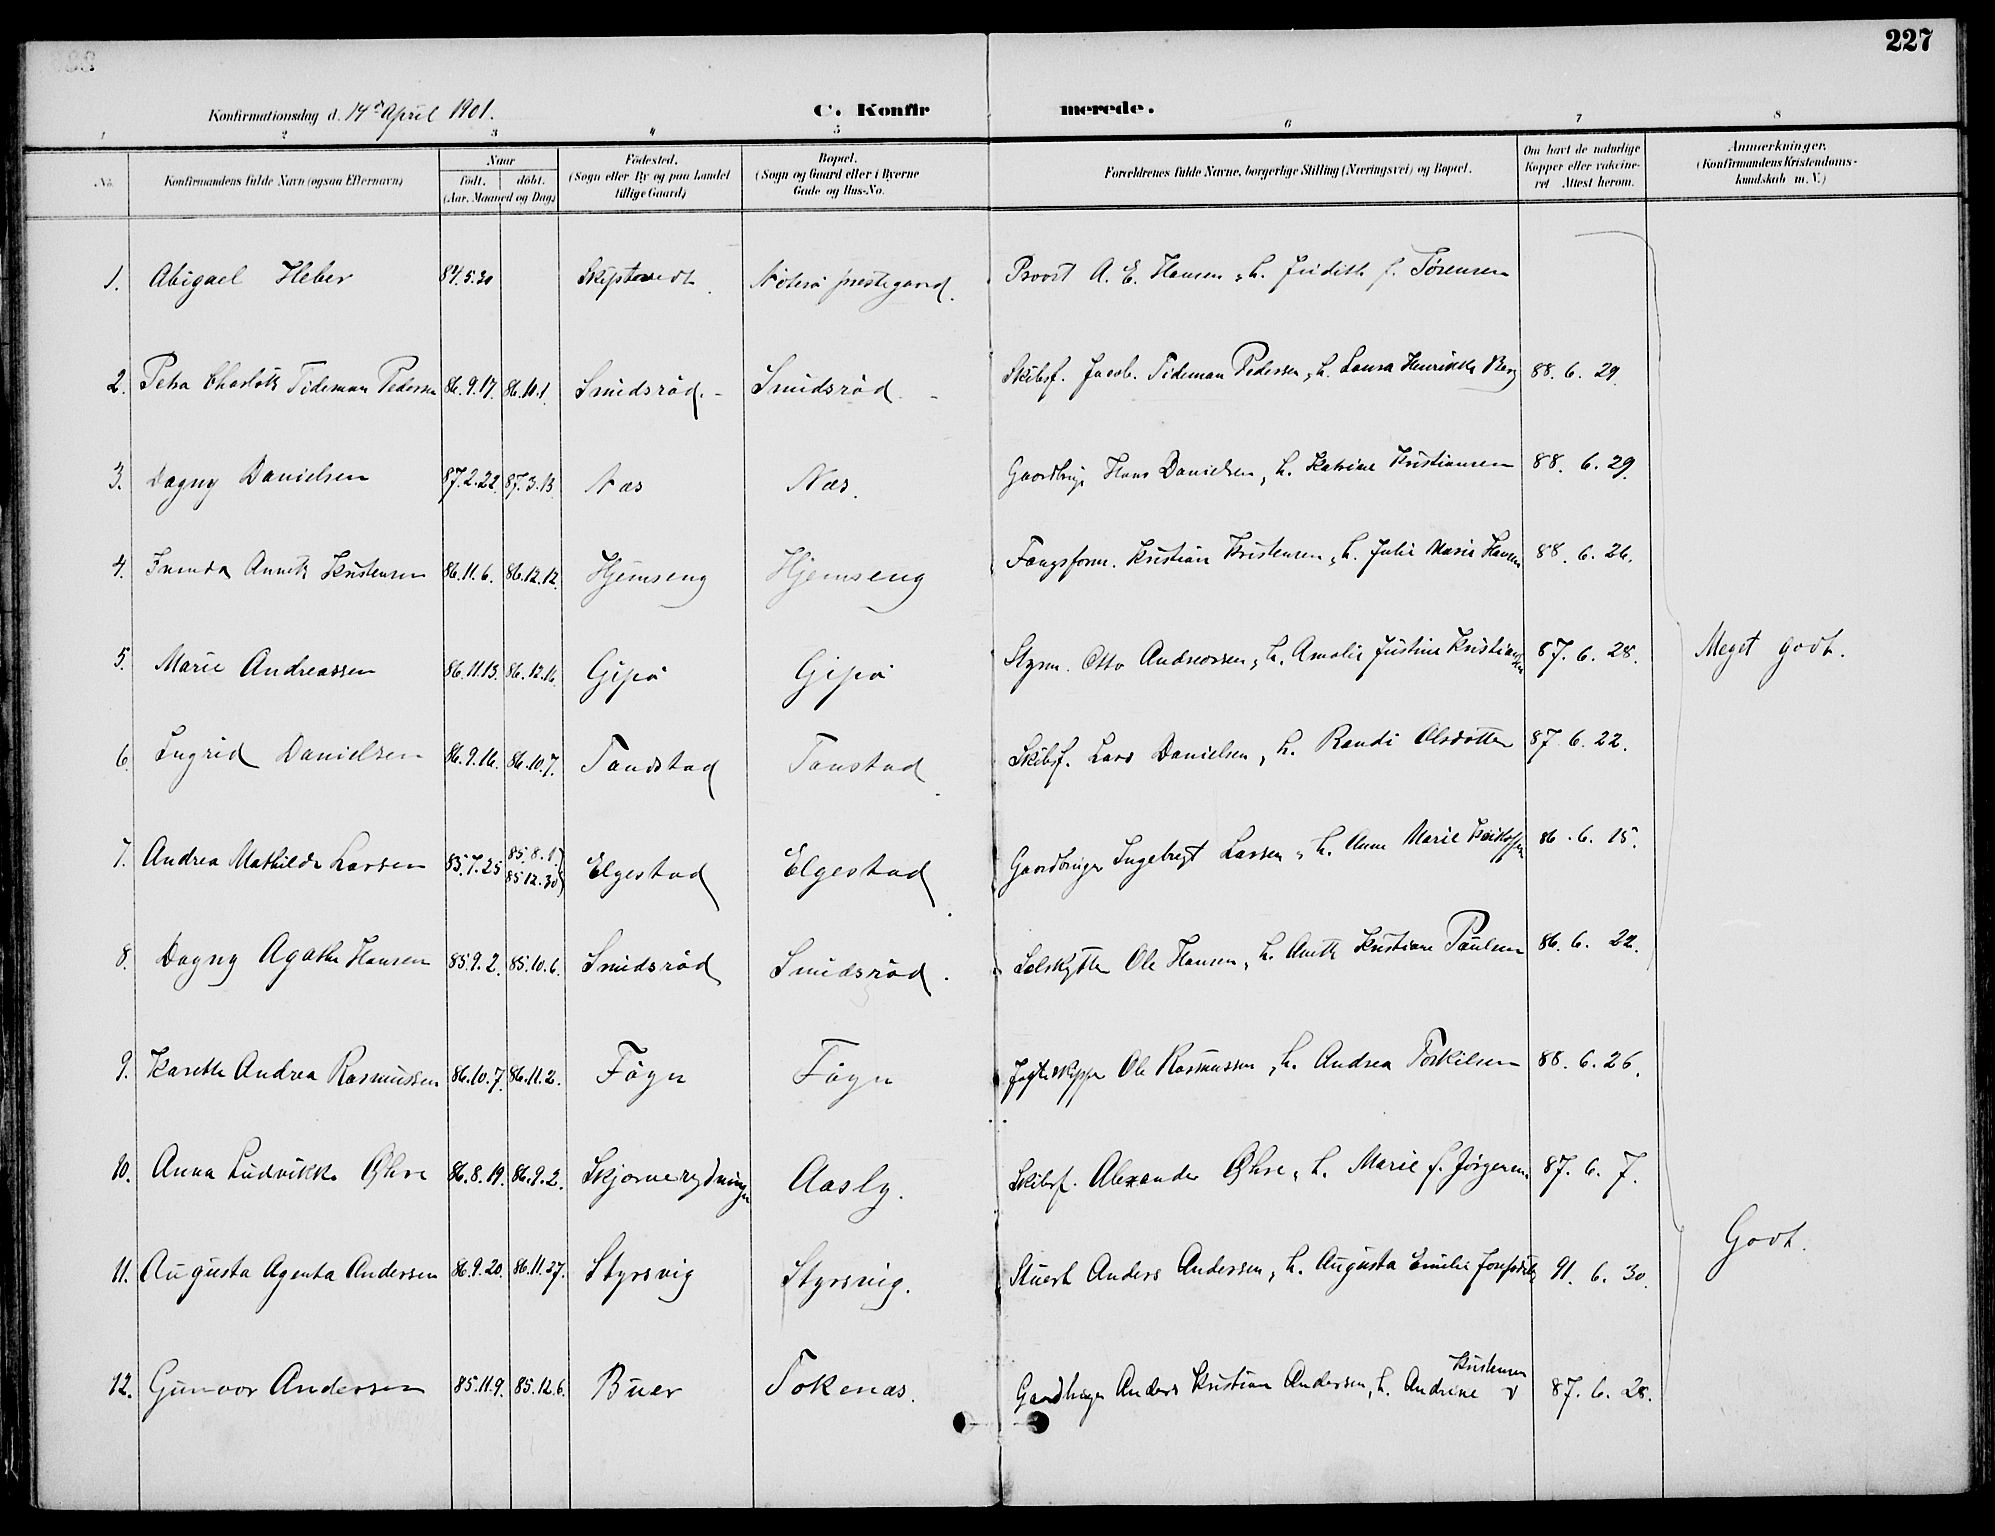 227
Konfirmationsdag d. 14de April 1901.
C. Konfirmerede.
1 2 3 4 5 6 7 8
No. Konfirmandens fulde Navn (ogsaa Efternavn) Naar født. døbt. (Aar, Maaned og Dag) Fødested. (Sogn eller By og paa Landet tillige Gaard) Bopæl. (Sogn og Gaard eller i Byerne Gade og Hus-No. Forældrenes fulde Navne, borgerlige Stilling (Næringsvei) og Bopæl. Om havt de naturlige Kopper eller vakcineret. Attest herom. Anmerkninger. (Konfirmandens Kristendomskundskab m. V.)
1. Abigael Heber 84.5.30 Skiptvedt Nøterø prestegaard. Provst A. E. Hansen, h. Judith f. Sørensen
2. Petra Charlotte Tideman Pedersen 86.9.17. 86.10.1. Smidsrød. Smidsrød. Skibsf. Jacob Tideman Pedersen, h. Laura Henrikke Berg 88. 6. 29.
3. Dagny Danielsen 87.2.22. 87.3.13. Næs Næs. Gaardbrug. Hans Danielsen, h. Katrine Kristiansen 88. 6. 29.
4. Annette Kristensen 86.11.6. 86.12.12. Hjemseng Hjemseng Fangsform. Kristian Kristensen, h. Julie Marie Hansen 88. 6. 26.
5. Marie Andreassen 86.11.13. 86.12.16. Gipø Gipø Styrm. Otto Andreassen, h. Amalie Justine Kristiansen 87. 6. 28. Meget godt.
6. Ingrid Danielsen 86.9.16. 86.10.7. Tandstad Tanstad Skibsf. Lars Danielsen, h. Randi Olsdotter 87. 6. 22.
7. Andrea Mathilde Larsen 85.7.25 85.8.1. 85.12.30 Elgestad Elgestad Gaardbruger Ingebregt Larsen, h. Anne Marie 86. 6. 15.
8. Dagny Agathe Hansen 85.9.2. 85.10.6. Smidsrød Smidsrød. Selskytter Ole Hansen, h. Anette Kristiane Paulsen 86. 6. 22.
9. Karette Andrea Rasmussen 86.10.7. 86.11.2. Føyn Føyn Jagteskipper Ole Rasmussen, h. Andrea Torkilsen 88. 6. 26.
10. Anna Ludvikke Øhre 86.8.19. 86.9.2. Skjærverydningen Aasly. Skibsf. Alexander Øhre, h. Marie f. Jørgensen 87. 6. 7.
Godt.
11. Augusta Agenta Andersen 86.9.20. 86.11.27. Styrsvig Styrsvig. Stuert Anders Andersen, h. Augusta Emilie 91. 6. 30.
12. Gunvor Andersen 85.11.9. 85.12.6. Buer Tokenæs. Gaardbruger Anders Kristian Andersen, h. Andrine Kristensen 87. 6. 28.